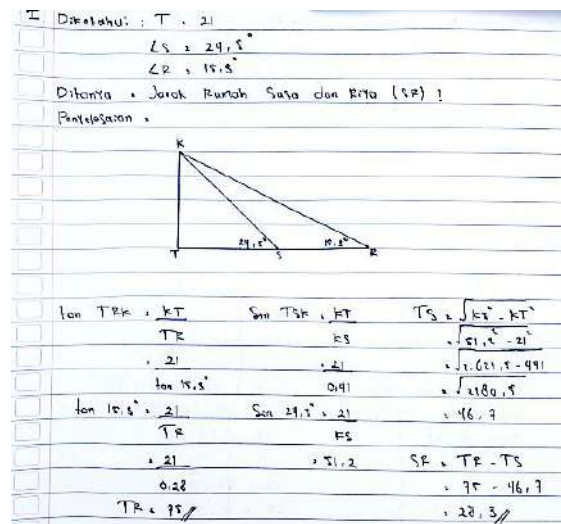 I Diketahui : T = 21
∠S = 24,5°
∠R = 15,3°
Ditanya = Jarak Rumah Sasa dan Riya (SR) !
Penyelesaian =
K
24,5° 15,3°
T S R
tan TRK = KT / TR
= 21 / tan 15,3°
tan 15,3° = 21 / TR
= 21 / 0,28
TR = 75 //
Sin TSK = KT / KS
= 21 / 0,41
Sin 24,5° = 21 / KS
= 51,2
TS = √KS² - KT²
= √51,2² - 21²
= √2.621,5 - 441
= √2180,5
= 46,7
SR = TR - TS
= 75 - 46,7
= 28,3 //